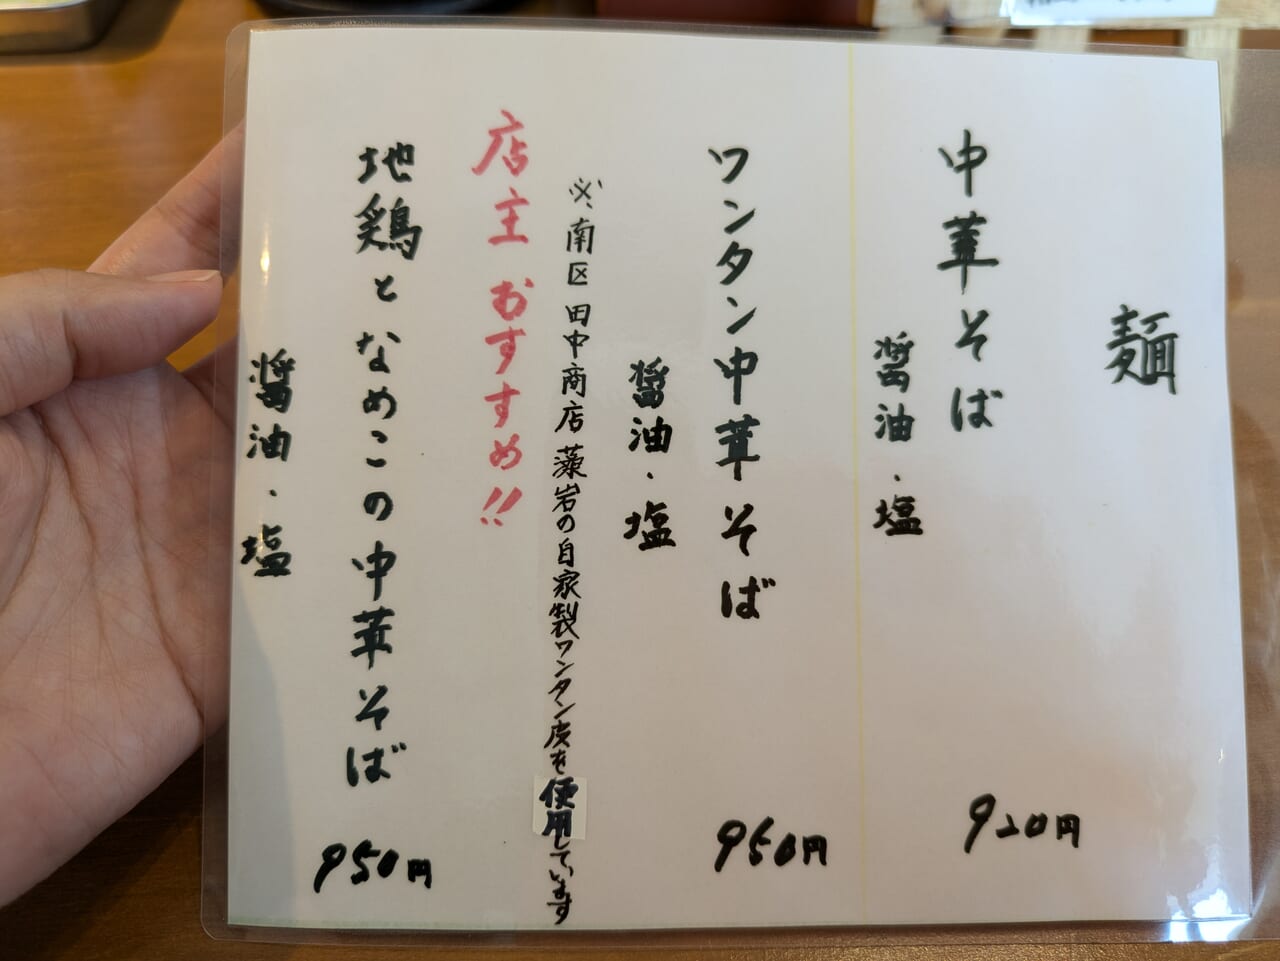 麺
中華そば
醤油・塩
920円
ワンタン中華そば
醤油・塩
950円
※南区田中商店藻岩の自家製ワンタン皮を使用しています
店主おすすめ!!
地鶏となめこの中華そば
醤油・塩
950円